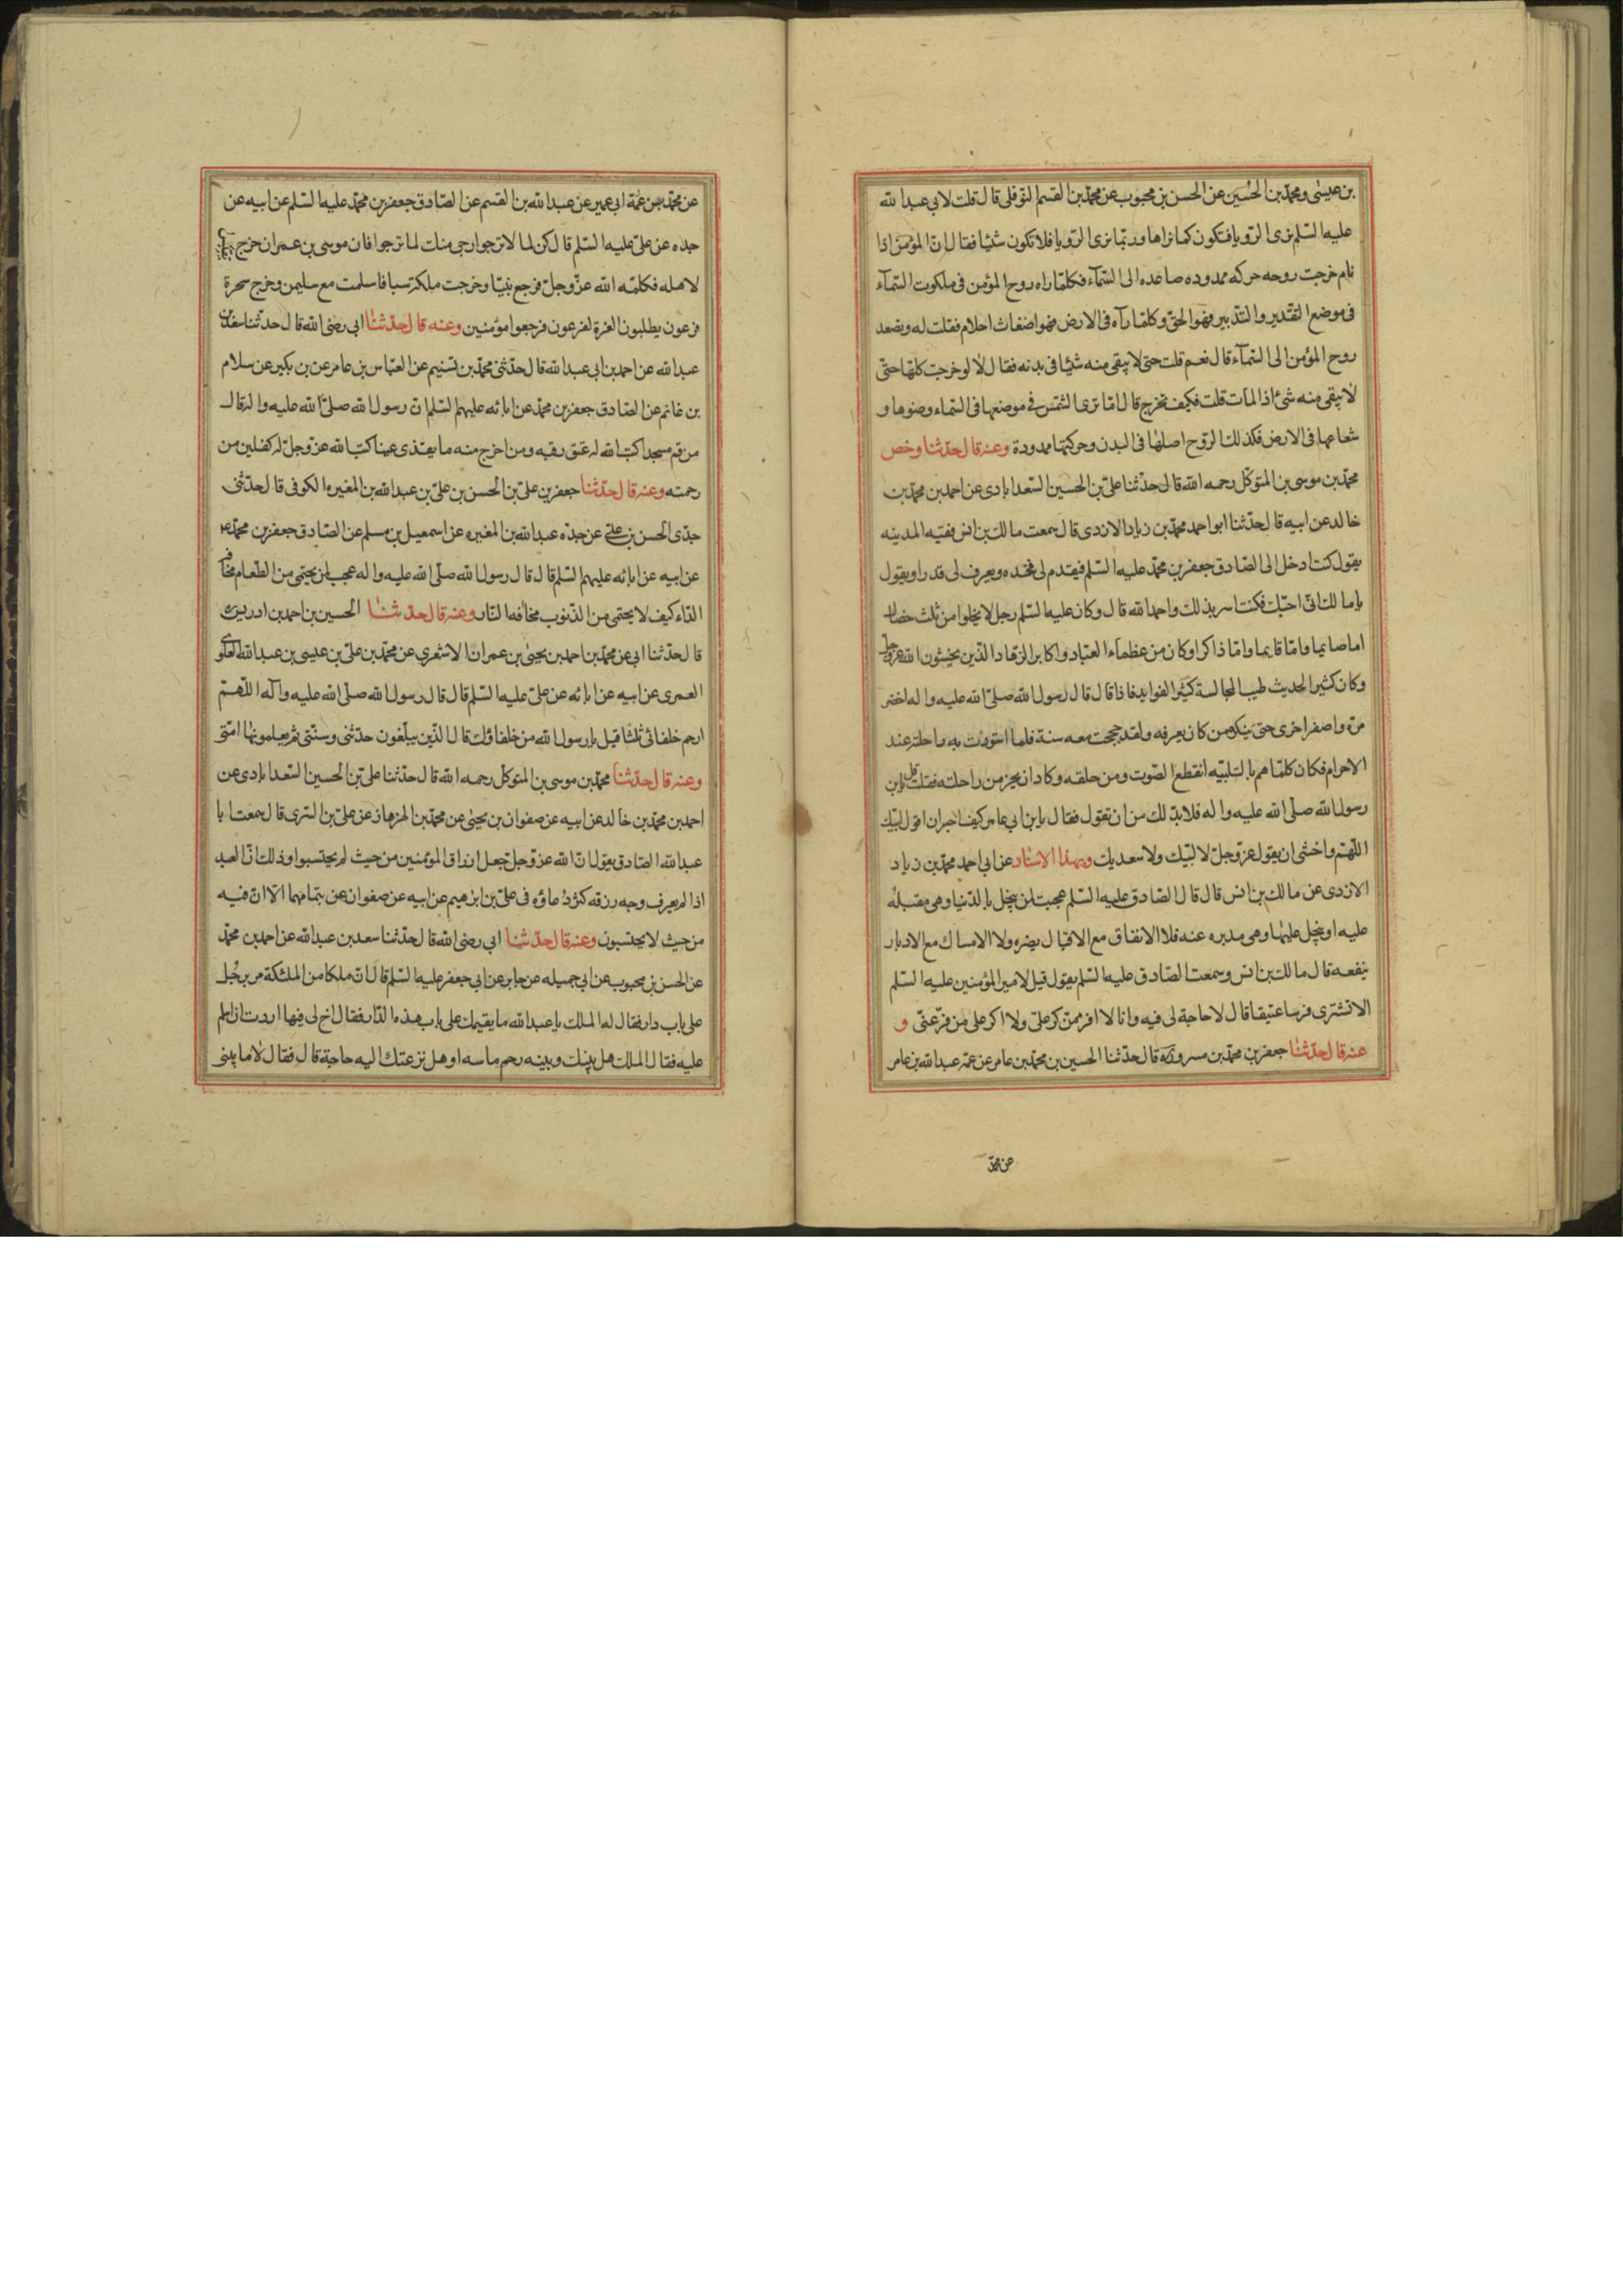 بن عيسى ومحمد بن الحسين عن الحسن بن محبوب عن محمد بن القسم النوفلى قال قلت لابى عبد الله
عليه السلم نرى الرويا فتكون كما نراها وربما نرى الرويا فلا تكون شيئا فقال ان المؤمن اذا
نام خرجت روحه حركه ممدوده صاعده الى السمآء فكلما راه روح المؤمن فى ملكوت السمآء
فى موضع التقدير والتدبير فهو الحق وكلما رآه فى الارض فهو اضغاث احلام فقلت له ويصعد
روح المؤمن الى السمآء قال نعم قلت حتى لا يبقى منه شيئا فى بدنه فقال لا لو خرجت كلها حتى
لا تبقى منه شئ اذا لمات قلت فكيف تخرج قال اما ترى الشمس فى موضعها فى السماء وضوها و
شعاعها فى الارض فكذلك الروح اصلها فى البدن وحركتها ممدودة وعنه قال حدثنا وخص
محمد بن موسى بن المتوكل رحمه الله قال حدثنا على بن الحسين السعدابادى عن احمد بن محمد بن
خالد عن ابيه قال حدثنا ابو احمد محمد بن زياد الازدى قال سمعت مالك بن انس فقيه المدينه
يقول كنت ادخل الى الصادق جعفر بن محمد عليه السلم فيقدم لى مخده ويعرف لى قدرا ويقول
يا مالك انى احبك فكنت اسر بذلك واحمد الله قال وكان عليه السلم رجل لا يخلوا من ثلث خصال
اما صايما واما قايما واما ذاكرا وكان من عظمآء العباد واكابر الزهاد الذين يخشون الله عز وجل
وكان كثير الحديث طيب المجالسة كثير الفوايد فاذا قال قال رسول الله صلى الله عليه واله اخضر
مرة واصفر اخرى حتى ينكره من كان يعرفه ولقد حججت معه سنة فلما استوت به راحلته عند
الاحرام فكان كلما هم بالتلبيه انقطع الصوت ومن حلقه وكاد ان يخر من راحلته فقلت قل يا بن
رسول الله صلى الله عليه واله فلا بد لك من ان تقول فقال يا بن ابى عامر كيف اجسران اقول لبيك
اللهم واخشى ان يقول عز وجل لا لبيك ولا سعديك وبهذا الاسناد عن ابى احمد محمد بن زياد
الازدى عن مالك بن انس قال قال الصادق عليه السلم عجبت لمن يبخل بالدنيا وهى مقبله
عليه او يبخل عليها وهى مدبره عنه فلا الانفاق مع الاقبال يضره ولا الامساك مع الادبار
ينفعه قال مالك بن انس وسمعت الصادق عليه السلم يقول قيل لامير المؤمنين عليه السلم
الا تشترى فرسا عتيقا قال لا حاجة لى فيه وانا لا افر ممن كر على ولا اكر على من فر عنى و
عنه قال حدثنا جعفر بن محمد بن مسرور قال حدثنا الحسين بن محمد بن عامر عن عمه عبد الله بن عامر
عن محمد
عن محمد بن عمة ابى عمير عن عبد الله بن القسم عن الصادق جعفر بن محمد عليه السلم عن ابيه عن
جده عن على عليه السلم قال كن لما لا ترجوا ارجى منك لما ترجوا فان موسى بن عمران خرج
لاهله فكلمه الله عز وجل فرجع نبيا وخرجت ملكة سبا فاسلمت مع سليمن وخرج سحرة
فرعون يطلبون العزة لفرعون فرجعوا مؤمنين وعنه قال حدثنا ابى رضى الله قال حدثنا سعد بن
عبد الله عن احمد بن ابى عبد الله قال حدثنى محمد بن تسنيم عن العباس بن عامر عن بن بكير عن سلام
بن غانم عن الصادق جعفر بن محمد عن ابائه عليهم السلم ان رسول الله صلى الله عليه واله قال
من قم مسجدا كتب الله له عتق رقبه ومن اخرج منه ما يقذى عينا كتب الله عز وجل له كفلين من
رحمته وعنه قال حدثنا جعفر بن على بن الحسن بن على بن عبد الله بن المغيره الكوفى قال حدثنى
جدى الحسن بن على عن جده عبد الله بن المغيره عن اسمعيل بن مسلم عن الصادق جعفر بن محمد ع
عن ابيه عن ابائه عليهم السلم قال قال رسول الله صلى الله عليه واله عجب لمن يحتمى من الطعام مخافة
الداء كيف لا يحتمى من الذنوب مخافه النار وعنه قال حدثنا الحسين بن احمد بن ادريس
قال حدثنا ابى عن محمد بن احمد بن يحيى بن عمران الاشعرى عن محمد بن على بن عيسى بن عبد الله العلوى
العمرى عن ابيه عن ابائه عن على عليه السلم قال قال رسول الله صلى الله عليه وآله اللهم
ارحم خلفائى ثلثا قيل يا رسول الله من خلفاؤك قال الذين يبلغون حدثنى وسنتى ثم يعلمونها امتى
وعنه قال حدثنا محمد بن موسى بن المتوكل رحمه الله قال حدثنا على بن الحسين السعدابادى عن
احمد بن محمد بن خالد عن ابيه عن صفوان بن يحيى عن محمد بن الهزهاز عن على بن السرى قال سمعت ابا
عبد الله الصادق يقول ان الله عز وجل جعل ارزاق المؤمنين من حيث لم يحتسبوا وذلك ان العبد
اذا لم يعرف وجه رزقه كثر دعاؤه فى على بن ابرهيم عن ابيه عن صفوان عن بتمامهما الا ان فيه
من حيث لا يحتسبون وعنه قال حدثنا ابى رضى الله قال حدثنا سعد بن عبد الله عن احمد بن محمد
عن الحسن بن محبوب عن ابى جميله عن جابر عن ابى جعفر عليه السلم قال ان ملكا من الملئكة مر برجل
على باب دار فقال له الملك يا عبد الله ما يقيمك على باب هذه الدار فقال اخ لى فيها اردت ان اسلم
عليه فقال الملك هل بينك وبينه رحم ماسه او هل نزعتك اليه حاجة قال فقال لا ما بينى